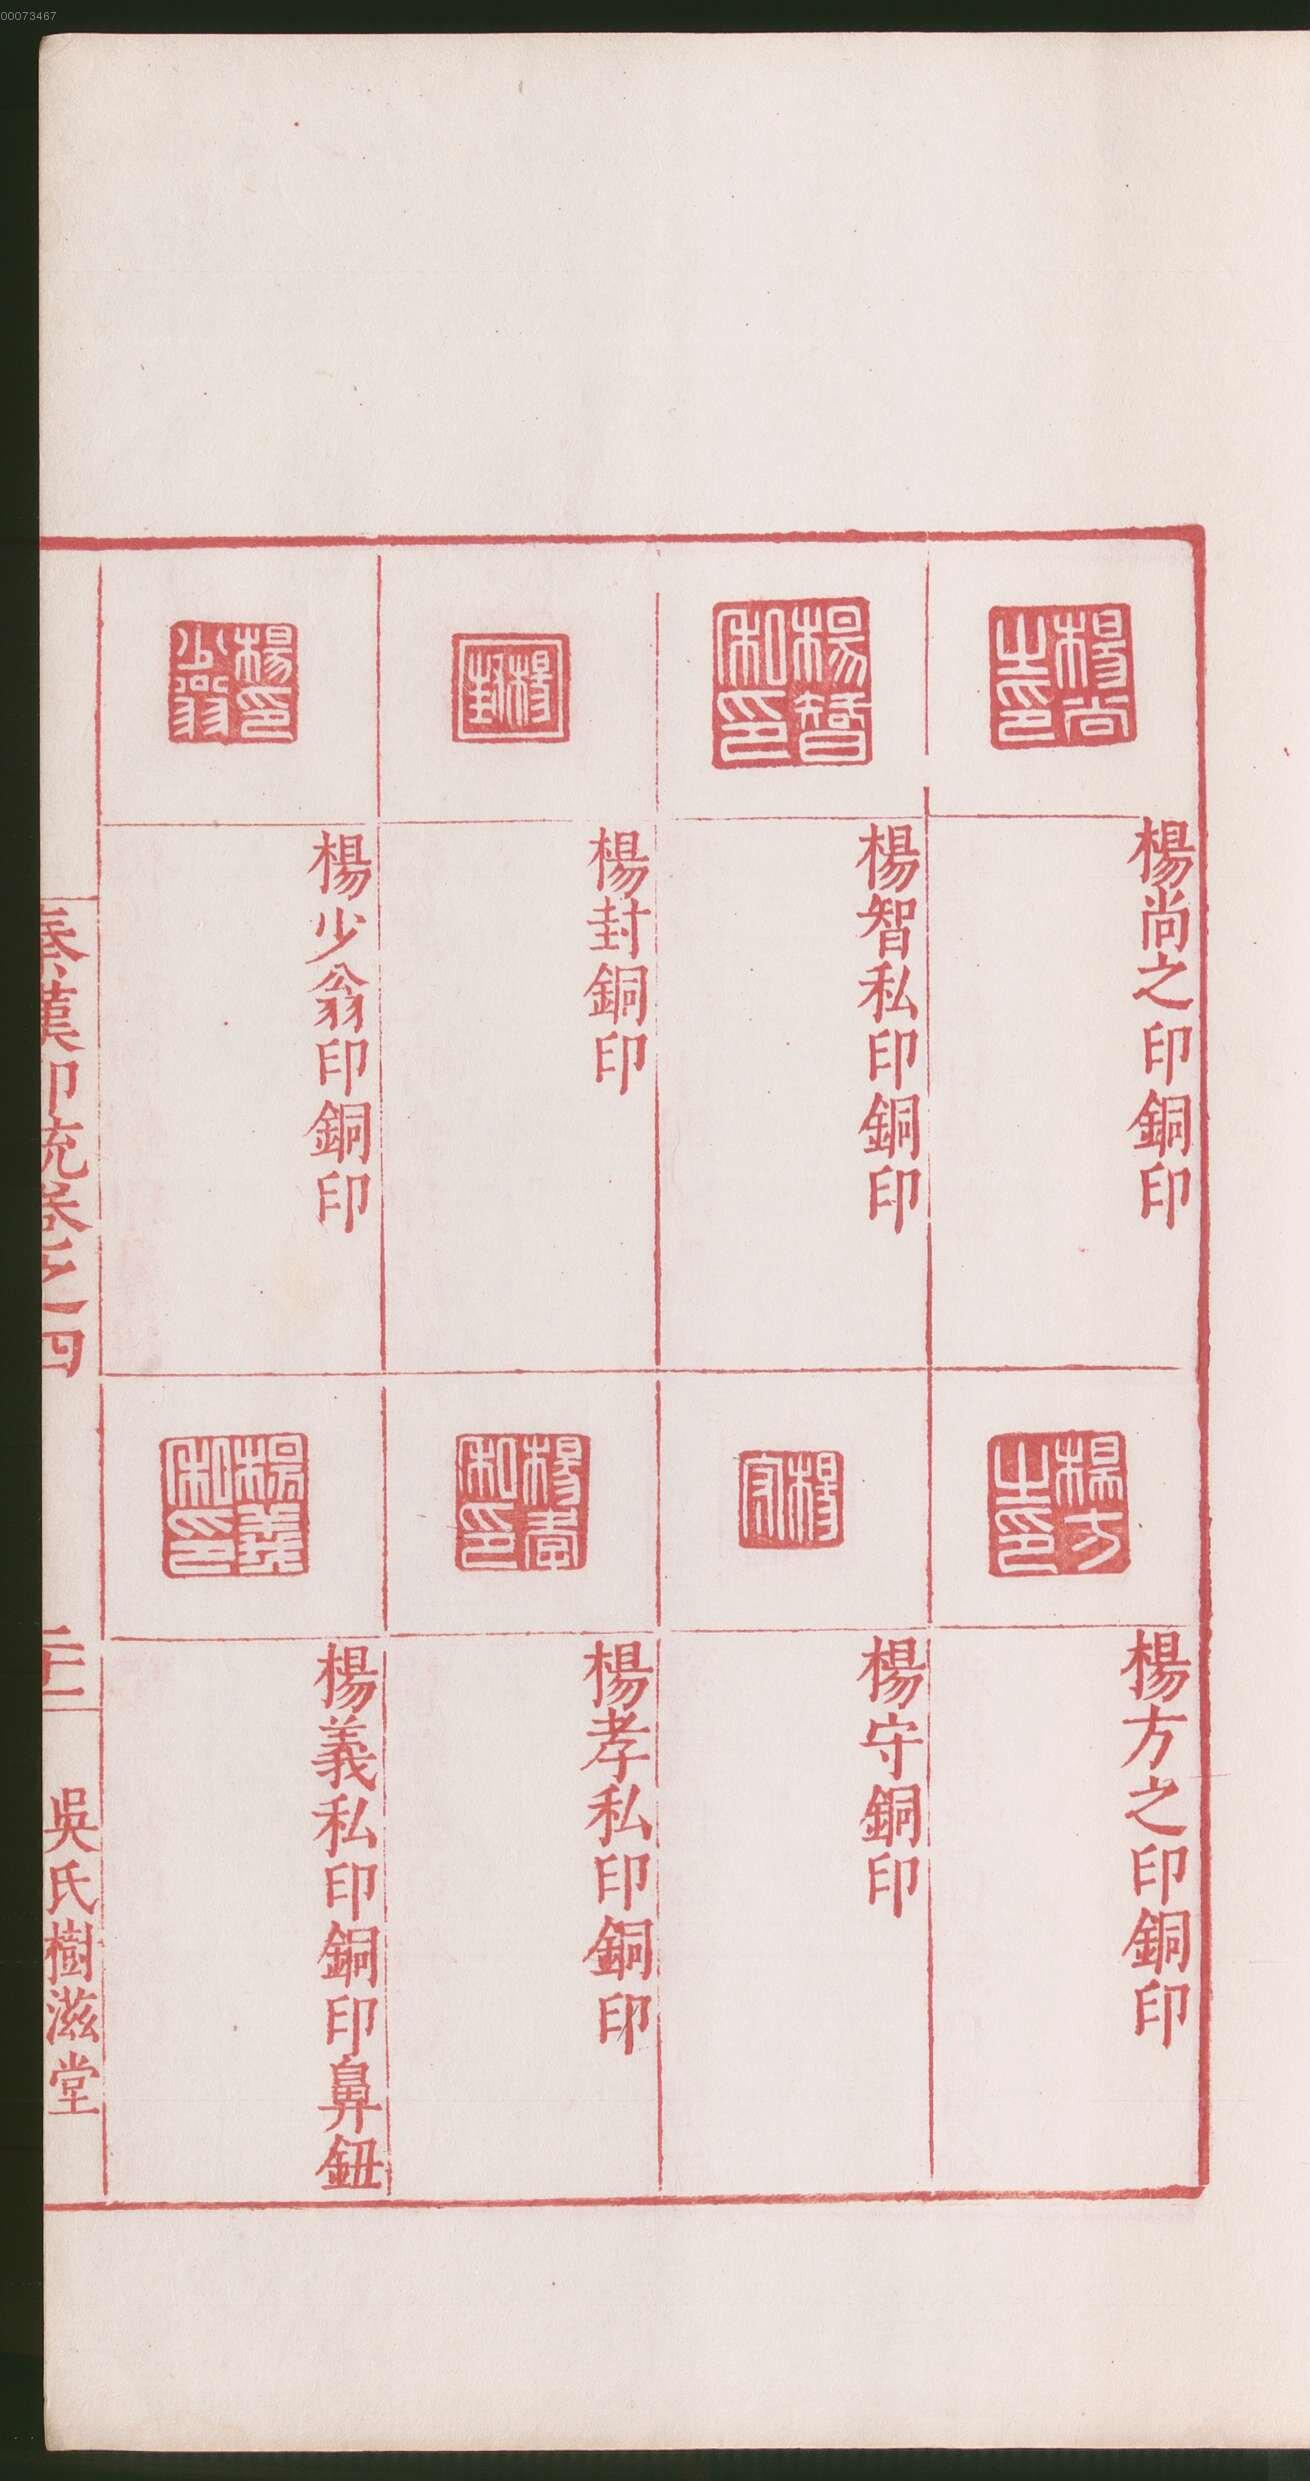 00073467
楊尚之印
楊尚之印銅印
楊智私印
楊智私印銅印
楊封
楊封銅印
楊印少翁
楊少翁印銅印
楊方之印
楊方之印銅印
楊守
楊守銅印
楊孝私印
楊孝私印銅印
楊義私印
楊義私印銅印鼻鈕
秦漢印統卷之四
二十二
吳氏樹滋堂